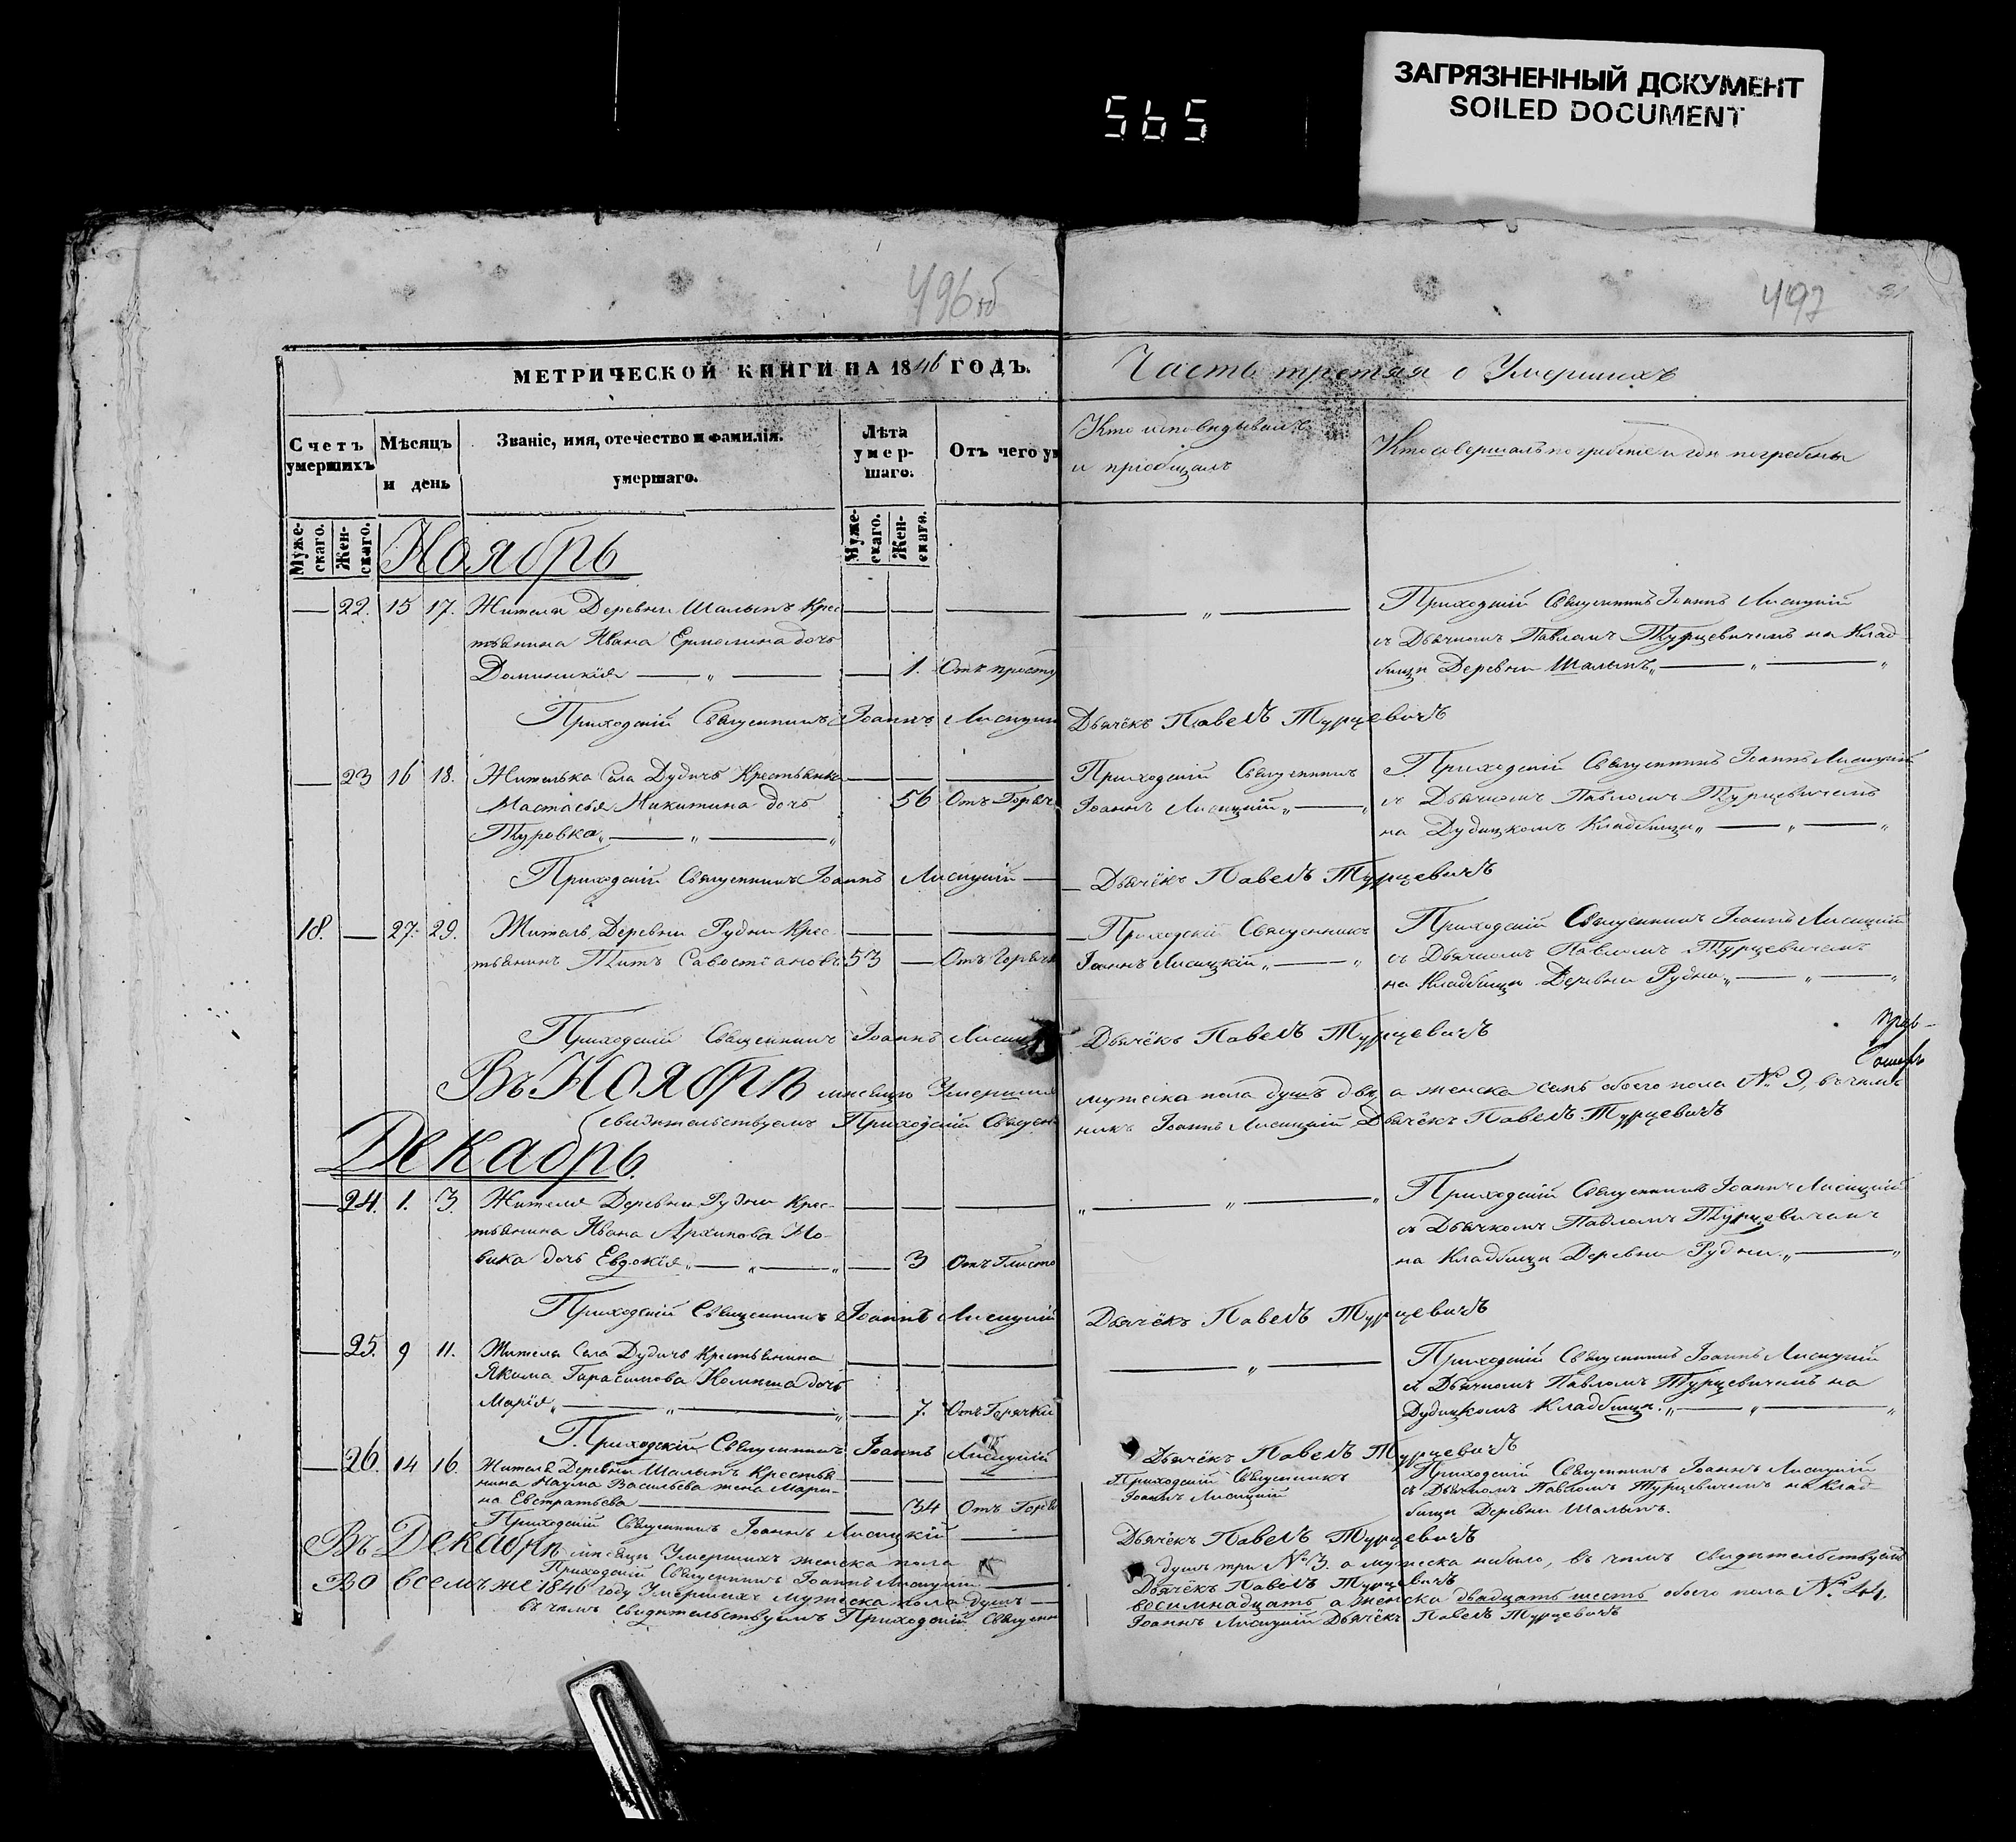 ЗАГРЯЗНЕННЫЙ ДОКУМЕНТ
SOILED DOCUMENT
565
496об
497
31
МЕТРИЧЕСКОЙ КНИГИ НА 1846 ГОДЪ.
Часть третяя о Умершихъ
Счетъ умершихъ
Мѣсяцъ и день
Званіе, имя, отечество и фамилія. умершаго.
Лѣта умер-шаго.
Отъ чего ум
Кто исповѣдывалъ
и пріобщалъ
Кто совершалъ погребеніе и гдѣ погребены
Муже-скаго.
Жен-скаго.
Муже-скаго.
Жен-скаго.
Ноябрь
— 22. 15 17. Жителя Деревни Шалыпъ Крес-
тьянина Ивана Ермолина дочь
Доминикія — „ — — 1. Отъ просту
— „ —
Приходскій Священникъ Іоаннъ Лисицкій
съ Дьячкомъ Павломъ Турцевичемъ на Клад-
бищѣ Деревни Шалыпъ „ — „ — „
Приходскій Священникъ Іоаннъ Лисицкі Дьячёкъ Павелъ Турцевичъ
— 23 16 18. Жителька Села Дудичъ Крестьянка
Настасья Никитина дочь 56 Отъ Горяч
Туровка „ — „ — „
Приходскій Священникъ
Іоаннъ Лисицкій „ — „
Приходскій Священникъ Іоаннъ Лисицкій
съ Дьячкомъ Павломъ Турцевичемъ
на Дудицкомъ Кладбищѣ „ — „ — „
Приходскій Священникъ Іоаннъ Лисицкій — Дьячёкъ Павелъ Турцевичъ
18. — 27. 29. Житель Деревни Рудни Крес-
тьянинъ Титъ Савостіановъ 53 — Отъ Горячк
Приходскій Священникъ
Іоаннъ Лисицкій „ — „
Приходскій Священникъ Іоаннъ Лисицкій
съ Дьячкомъ Павломъ Турцевичемъ
на Кладбищѣ Деревни Рудни „ — „ — „
Приходскій Священникъ Іоаннъ Лисицк Дьячёкъ Павелъ Турцевичъ
Въ Ноябрѣ мѣсяцѣ Умерших мужеска пола душъ двѣ, а женска семь обоего пола № 9, въ чемъ
свидѣтельствуемъ Приходскій Священ никъ Іоаннъ Лисицкій Дьячёкъ Павелъ Турцевичъ
Декабрь.
— 24. 1. 3. Жителя Деревни Рудни Крес-
тьянина Ивана Архипова Но-
вика дочь Евдокія „ — „ — „ — 3 Отъ Глисто
„ — „ — „
Приходскій Священникъ Іоаннъ Лисицкій
съ Дьячкомъ Павломъ Турцевичемъ
на Кладбищѣ Деревни Рудни „ — „
Приходскій Священникъ Іоаннъ Лисицкій Дьячёкъ Павелъ Турцевичъ
— 25. 9 11. Жителя Села Дудичъ Крестьянина
Якима Гарасимова дочь
Марія „ — „ — „ — 7. Отъ Горячки
— „ —
Приходскій Священникъ Іоаннъ Лисицкій
съ Дьячкомъ Павломъ Турцевичемъ на
Дудицкомъ Кладбищѣ. „ — „ — „
Приходскій Священникъ Іоаннъ Лисицкій Дьячёкъ Павелъ Турцевичъ
— 26. 14 16. Жителя Деревни Шалыпъ Крестья-
нина Наума Васильева жена Мари-
на Евстратьева — — 34 Отъ Горя
Приходскій Священникъ
Іоаннъ Лисицкій
Приходскій Священникъ Іоаннъ Лисицкій
съ Дьячкомъ Павломъ Турцевичемъ на Клад-
бищѣ Деревни Шалыпъ.
Приходскій Священникъ Іоаннъ Лисицкій — Дьячёкъ Павелъ Турцевичъ
Въ Декабрѣ мѣсяцѣ Умершихъ женска пола душъ три № 3. а мужеска небыло, въ чемъ свидѣтельствуемъ
Приходскій Священникъ Іоаннъ Лисицкій — Дьячёкъ Павелъ Турцевичъ
Во всемъ же 1846 году Умершихъ мужеска пола душъ — восимнадцать а женска двадцать шесть обоего пола № 44.
въ чемъ свидѣтельствуемъ Приходскій Священн Іоаннъ Лисицкій Дьячёкъ Павелъ Турцевичъ